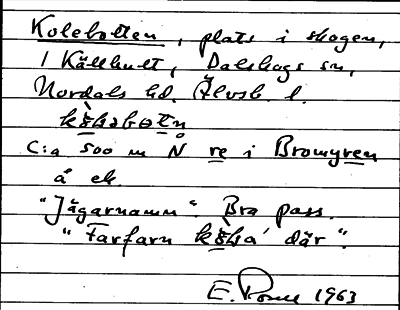 Kolebotten, plats i skogen,
i Källhult, Dalskogs sn,
Nordals hd. Älvsb. l.
kò̱lɘbɔtn̥
C:a 500 m N re i Bromyren
å ek.
"Jägarnamn". Bra pass.
"Farfarn kò̱la' där".
E. 1963